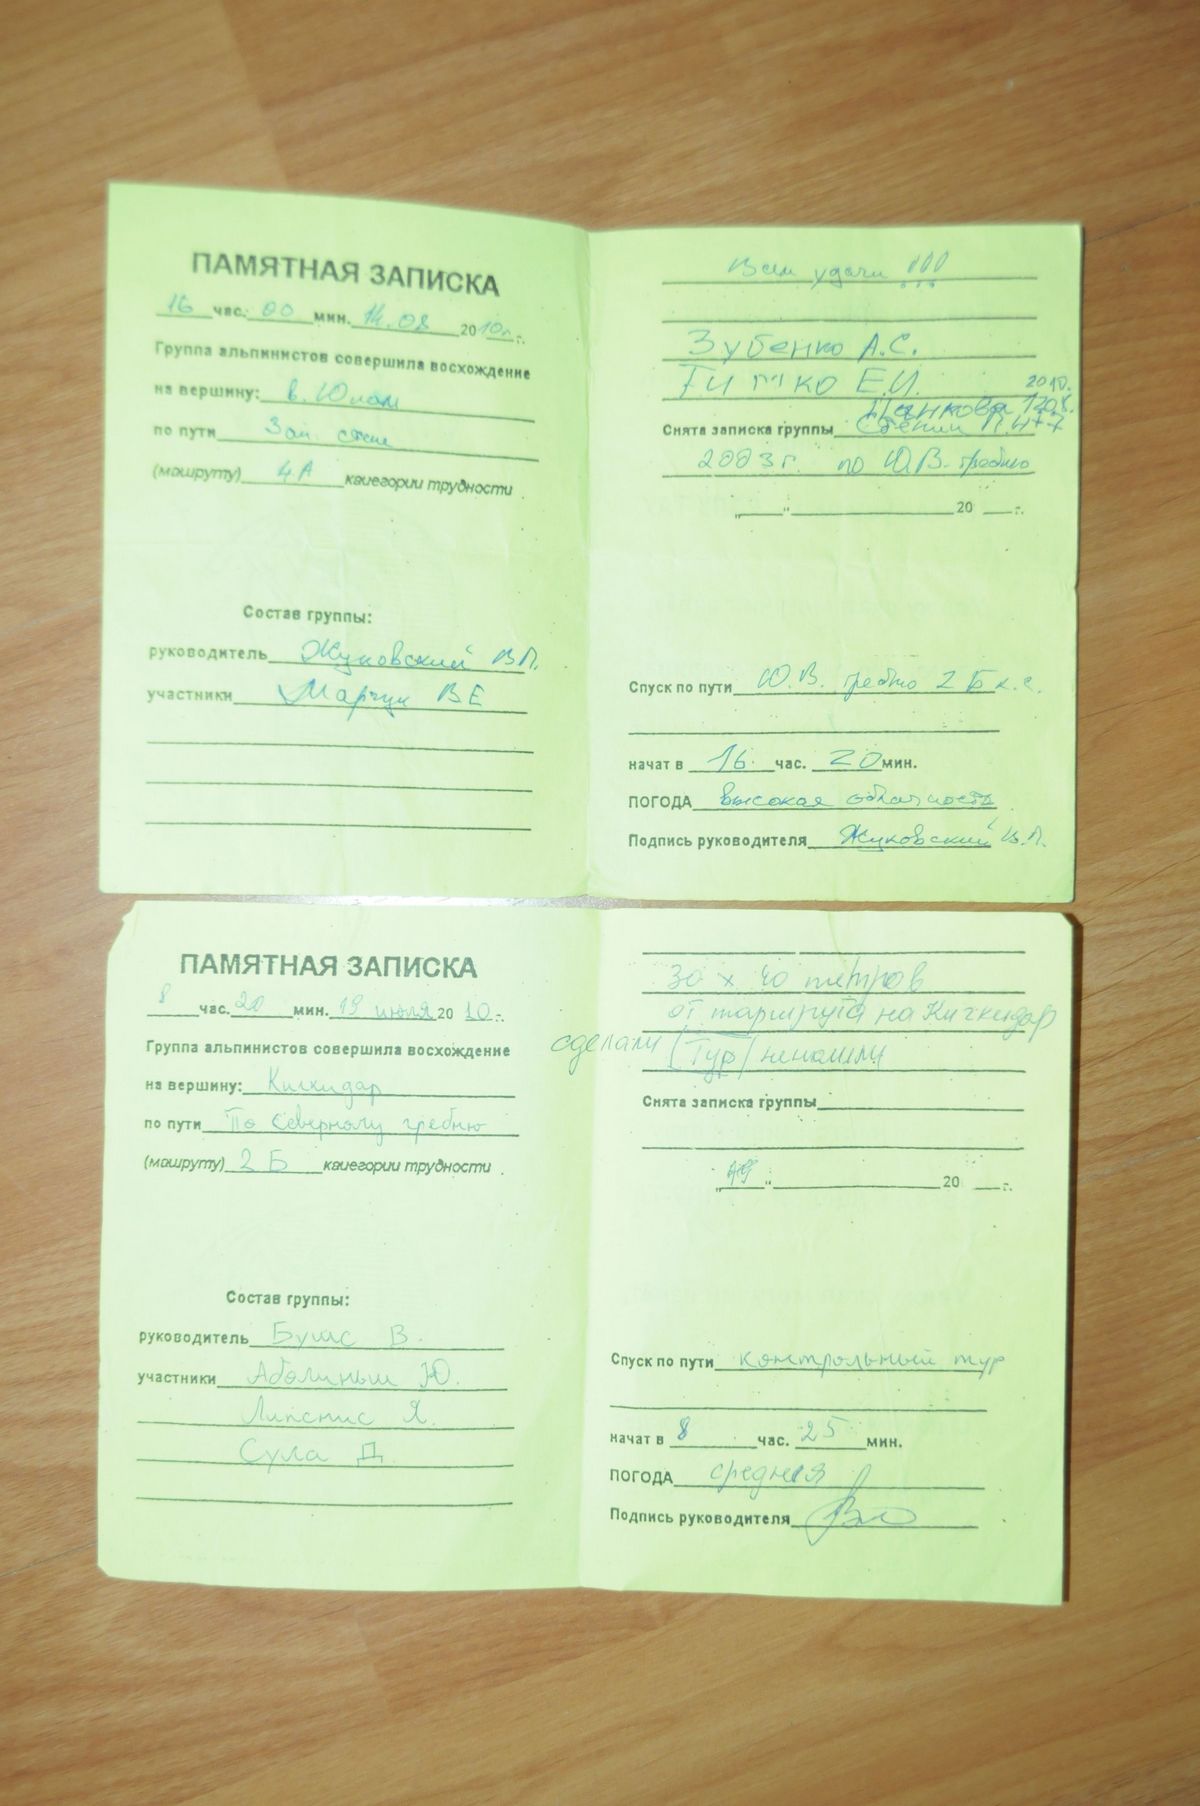 ПАМЯТНАЯ ЗАПИСКА
16 час. 00 мин. 14.08 2010г.
Группа альпинистов совершила восхождение
на вершину: в. Юлам
по пути Зап. стене
(маршруту) 4А категории трудности
Состав группы:
руководитель Жуковский В.П.
участники Марчук В Е
Всем удачи !!!
Зубенко А.С.
Гитко Е.И.
2010.
Снята записка группы
2003г. по Ю.В. гребню
„ “ 20 г.
Спуск по пути Ю.В. гребню 2 Б к.с.
начат в 16. час. 20 мин.
ПОГОДА высокая облачность
Подпись руководителя Жуковский В.П.
ПАМЯТНАЯ ЗАПИСКА
8 час. 20 мин. 19 июля 2010 г.
Группа альпинистов совершила восхождение
на вершину: Кичкидар
по пути По северному гребню
(маршруту) 2 Б категории трудности
Состав группы:
руководитель Бушс В.
участники Аболиньш Ю.
Липснис Я.
Сула Д.
30 х 40 метров
от маршрута на Кичкидар
сделали (Тур) ненашли
Снята записка группы
„19“ 20 г.
Спуск по пути контрольный тур
начат в 8 час. 25 мин.
ПОГОДА средняя
Подпись руководителя